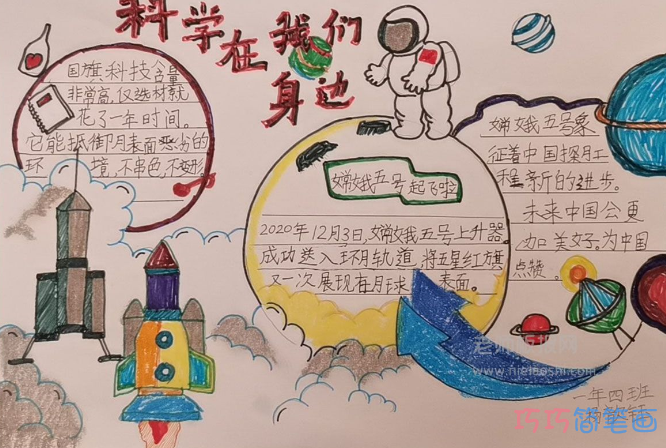 科学在我们
身边
国旗科技含量
非常高,仅选材就
花了一年时间。
它能抵御月表面恶劣的
环境,不串色,不变形
嫦娥五号起飞啦
2020年12月3日,嫦娥五号上升器
成功送入环月轨道,将五星红旗
又一次展现在月球表面。
嫦娥五号象
征着中国探月工
程新的进步。
未来中国会更
加美好。为中国
点赞。
一年四班
巧巧简笔画